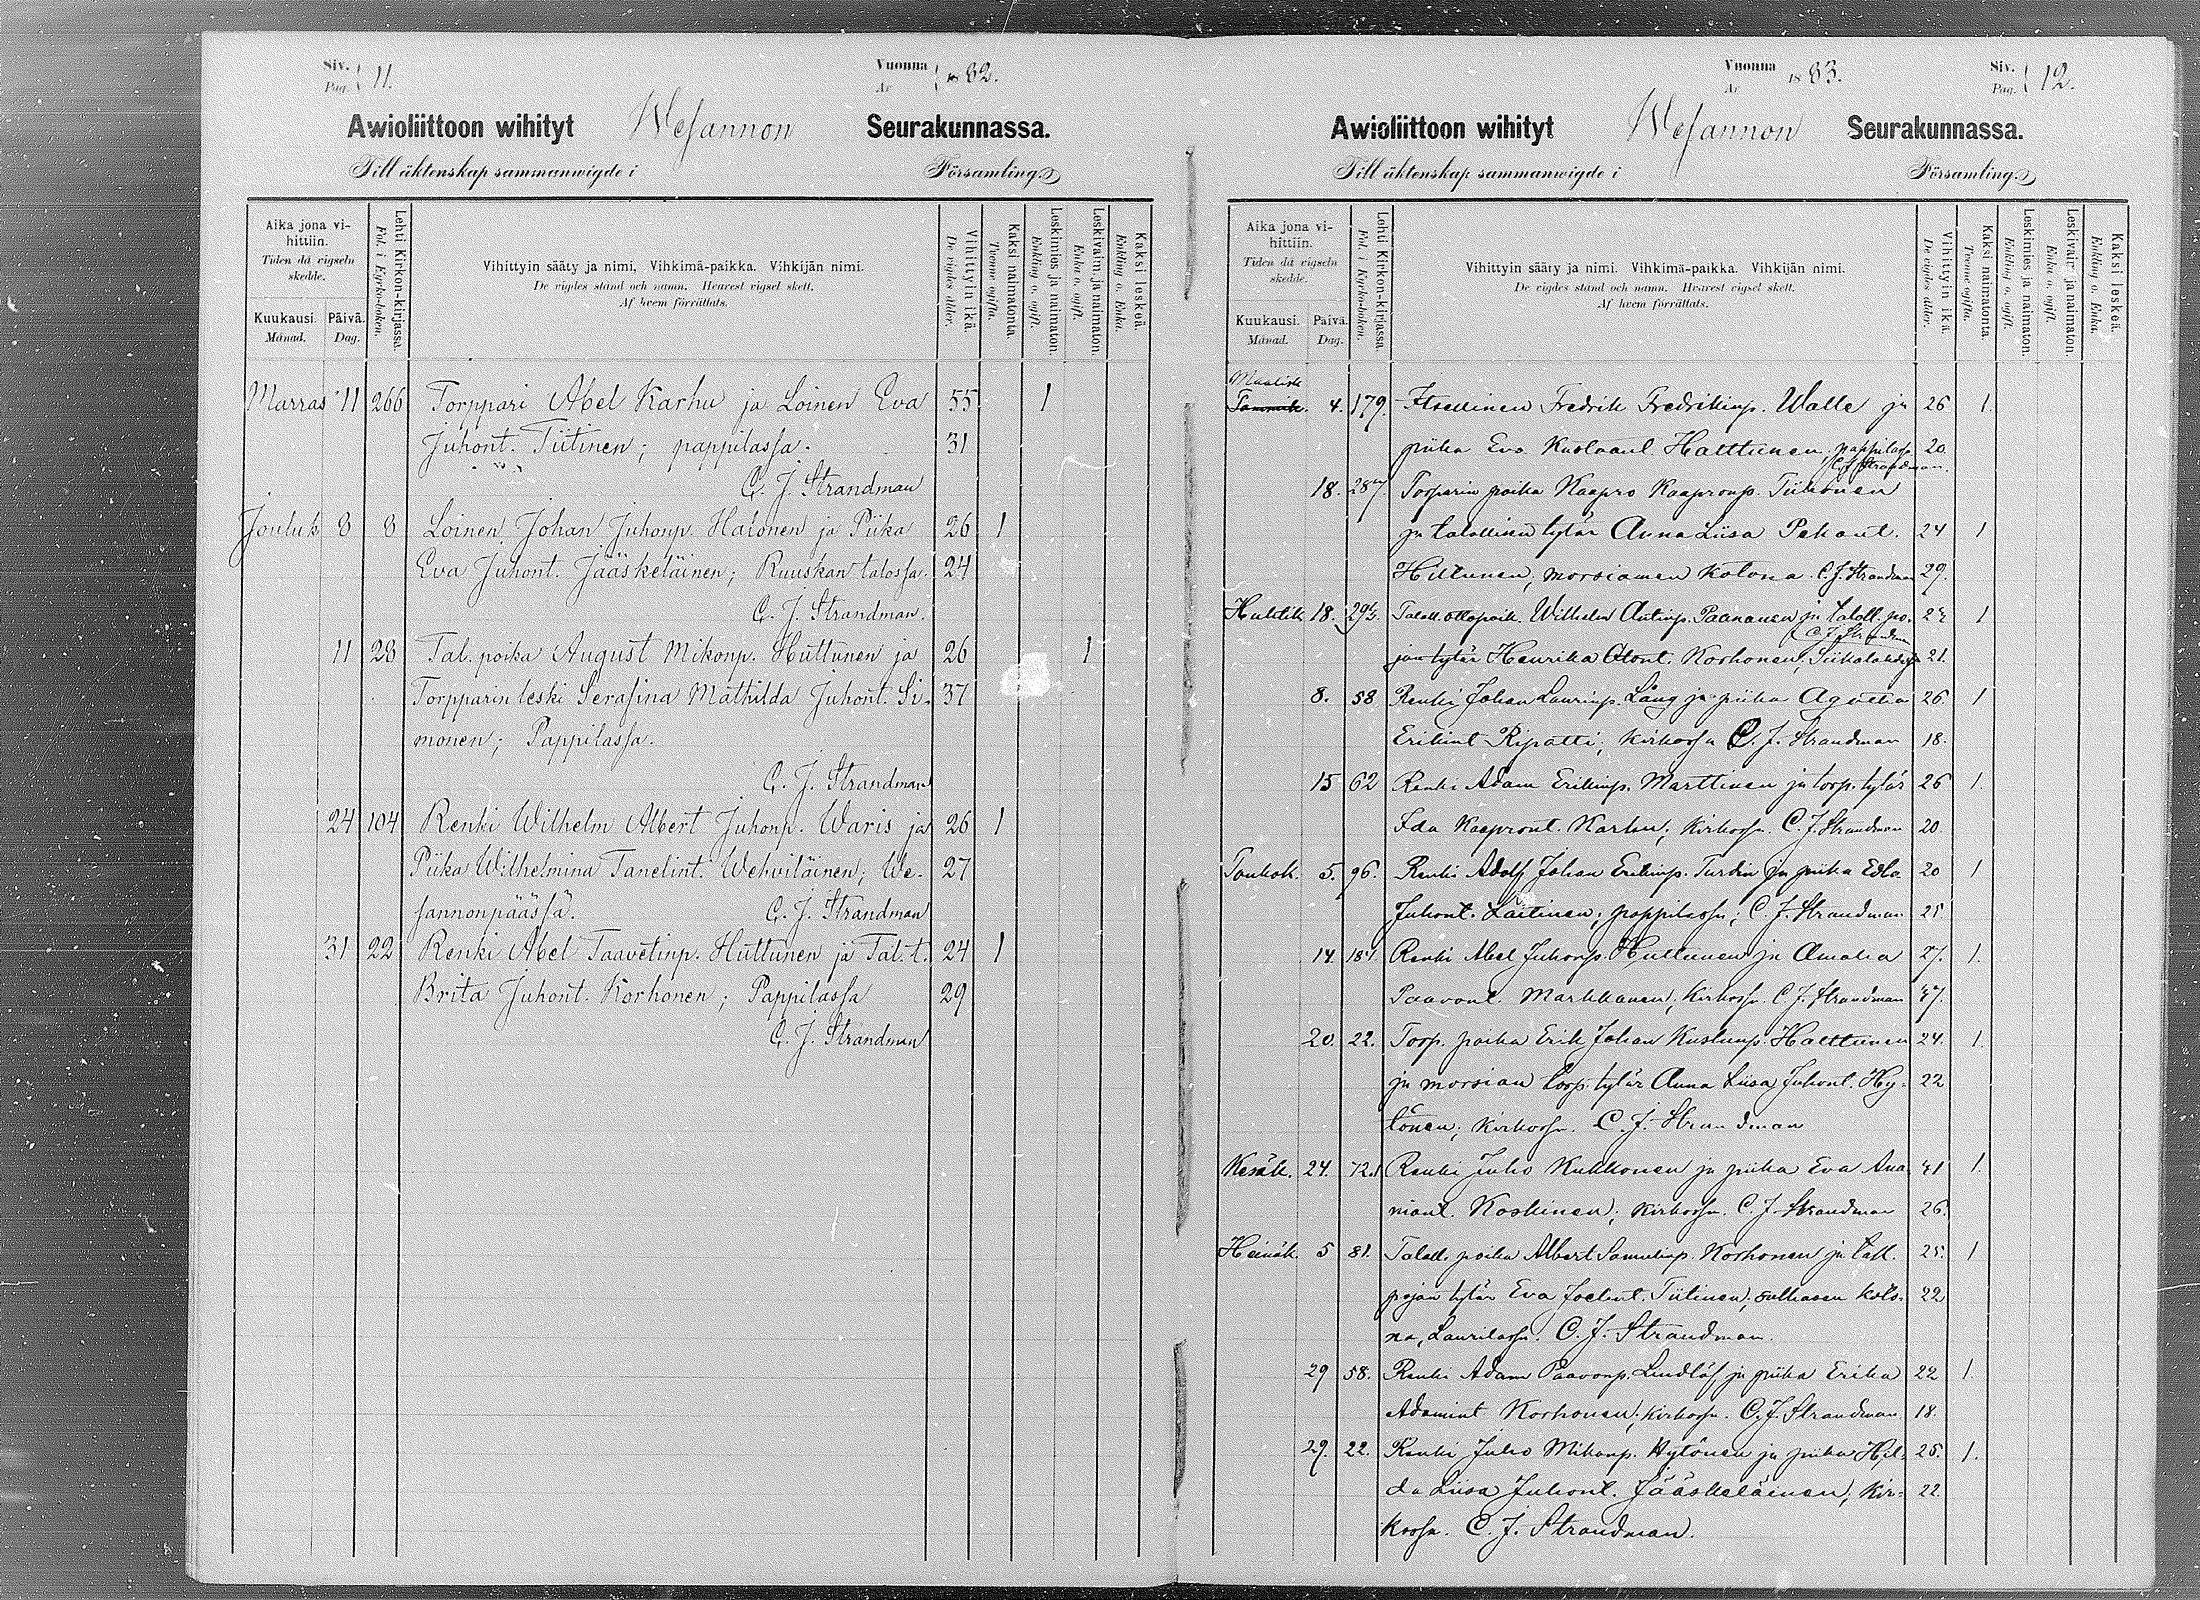 Siv. Pag. 11.
Vuonna År 1882.
Awioliittoon wihityt Wesannon Seurakunnassa.
Till äktenskap sammanwigde i Församling.
Aika jona vihittiin. Tiden då vigseln skedde.
Kuukausi. Månad.
Päivä. Dag.
Lehti Kirkon-kirjassa. Fol. i Kyrko-boken.
Vihittyin sääty ja nimi. Vihkimä-paikka. Vihkijän nimi.
De vigdes stånd och namn. Hvarest vigsel skett.
Af hvem förrättats.
Vihittyin ikä. De vigdes ålder.
Kaksi naimatonta. Tvenne ogifta.
Leskimies ja naimaton. Enkling o. ogift.
Leskivaim. ja naimaton. Enka o. ogift.
Kaksi leskeä. Enkling o. Enka.
Marras 11 266 Torppari Abel Karhu ja Loinen Eva 55 1
Juhont. Tiitinen; pappilassa. 31
C. J. Strandman
Jouluk 8 8 Loinen Johan Juhonp. Halonen ja Piika 26 1
Eva Juhont. Jääskeläinen; Ruuskan talossa. 24
C. J. Strandman.
11 28 Tal. poika August Mikonp. Huttunen ja 26 1
Torpparin leski Serafina Mathilda Juhont. Si- 37
monen; Pappilassa.
C. J. Strandman
24 104 Renki Wilhelm Albert Juhonp. Waris ja 26 1
Piika Wilhelmina Tanelint. Wehviläinen; We- 27
sannonpäässä. C. J. Strandman
31 22 Renki Abel Taavetinp. Huttunen ja Tal. t. 24 1
Brita Juhont. Korhonen; Pappilassa 29
C. J. Strandman
Vuonna År 1883.
Siv. Pag. 12.
Awioliittoon wihityt Wesannon Seurakunnassa.
Till äktenskap sammanwigde i Församling.
Aika jona vihittiin. Tiden då vigseln skedde.
Kuukausi. Månad.
Päivä. Dag.
Lehti Kirkon-kirjassa. Fol. i Kyrkoboken.
Vihittyin sääty ja nimi. Vihkimä-paikka. Vihkijän nimi.
De vigdes stånd och namn. Hvarest vigsel skett.
Af hvem förrättats.
Vihittyin ikä. De vigdes ålder.
Kaksi naimatonta. Tvenne ogifta.
Leskimies ja naimaton. Enkling o. ogift.
Leskivaim. ja naimaton. Enka o. ogift.
Kaksi leskeä. Enkling o. Enka.
Maalisk
Tammik. 4. 179. Itsellinen Fredrik Fredrikinp. Walle ja 26 1.
piika Eva Kustaant. Halttunen, pappilassa 20.
C. J. Strandman.
18. 287. Torparin poika Kaapro Kaapronp. Tiihonen
ja talollisen tytär Anna Liisa Pekant. 24 1
Hiltunen, morsiamen kotona. C. J. Strandman 29.
Huhtik 18. Talol. ottopoik. Wilhelm Antinp. Paananen ja taloll. po- 1
C. J. Strandman
jan tytär Henrika Otont. Korhonen; 21.
8. 58 Renki Johan Laurinp. Lång ja piika Agatha 26. 1
Erikint Ripatti, kirkossa C. J. Strandman 18.
15 62 Renki Adam Erikinp. Marttinen ja torp. tytär 26 1.
Ida Kaapront. Karhu; kirkossa. C. J. Strandman 20.
Toukok. 5. 96. Renki Adolf Johan Erikinp. Turdin ja piika Edla 20 1
Juhont. Laitinen; pappilassa; C. J. Strandman 25
14. Renki Abel Juhonp. Huttunen ja Amalia 27. 1.
Paavont. Markkanen; kirkossa. C. J. Strandman
20. 22. Torp. poika Erik Johan Kustinp. Halttunen 24. 1.
ja morsian torp. tytär Anna Liisa Juhont. Hy- 22
tönen; kirkossa. C. J. Strandman
Kesäk. 24. 72. Renki Juho Kukkonen ja piika Eva Ana- 41 1.
niant. Koskinen; kirkossa. C. J. Strandman 26.
Heinäk. 5 81. Taloll. poika Albert Samulinp. Korhonen ja tall. 25. 1
pojan tytär Eva Joelint. Tiitinen; sulhasen koto- 22
na, Laurilassa. C. J. Strandman.
29 58. Renki Adam Paavonp. Lindlöf ja piika Erika 22 1.
Adamint Korhonen; kirkossa. C. J. Strandman 18.
29. 22. Renki Juho Mikonp. Hytönen ja piika Hil- 25. 1.
da Liisa Juhont. Jääskeläinen; kir- 22.
kossa. C. J. Strandman.